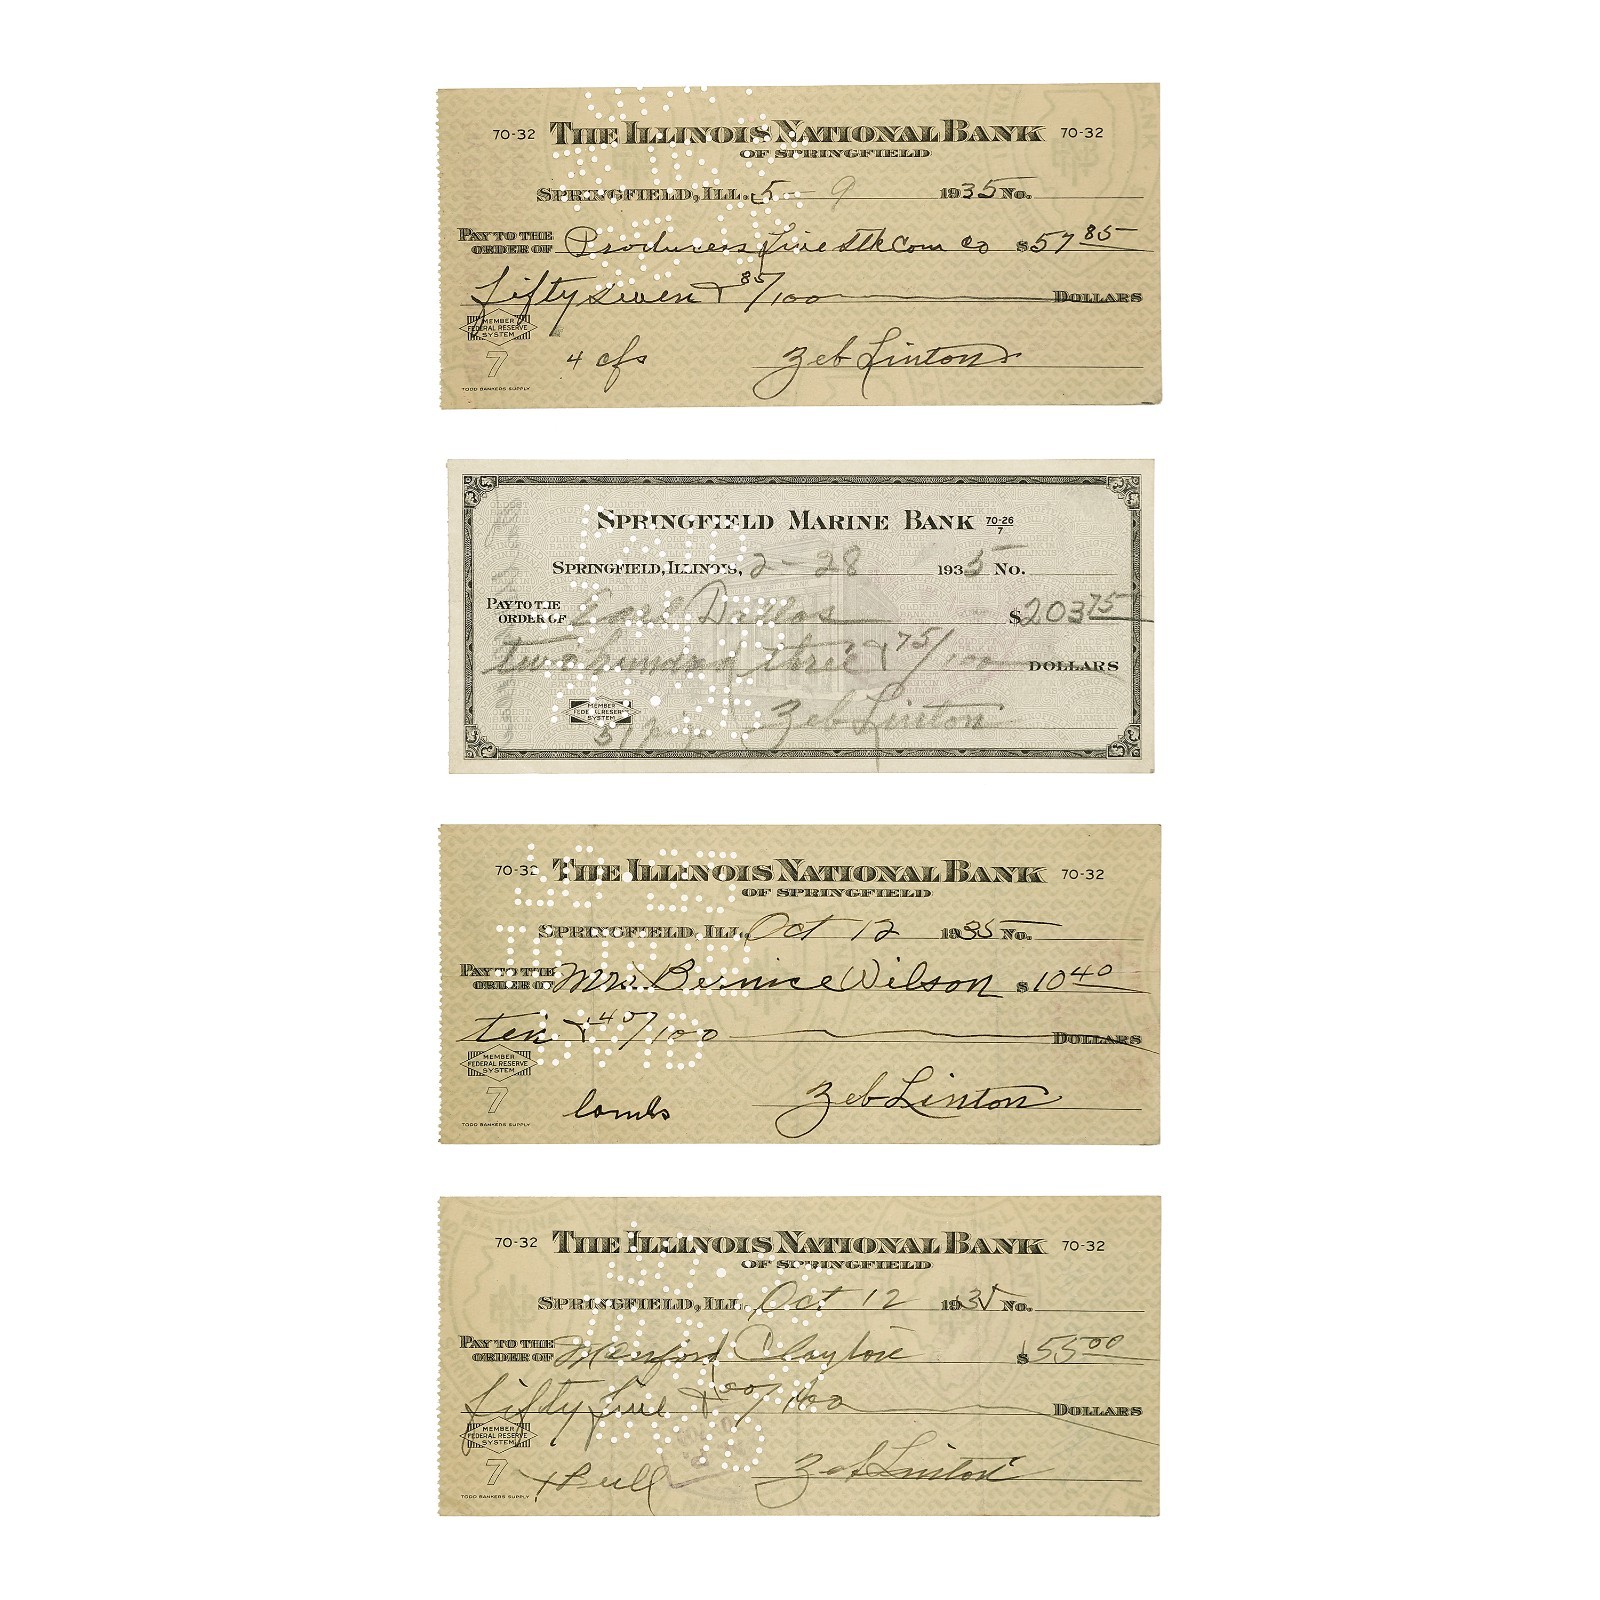 70-32 THE ILLINOIS NATIONAL BANK 70-32
OF SPRINGFIELD
SPRINGFIELD, ILL. 5 - 9 1935 No.
PAY TO THE ORDER OF Producers Live Stk Com Co $57 85
fifty seven & 85/100 DOLLARS
MEMBER FEDERAL RESERVE SYSTEM
7 4 cfs Zeb Linton
TODD BANKERS SUPPLY
SPRINGFIELD MARINE BANK 70-26/7
SPRINGFIELD, ILLINOIS, 2 - 28 1935 No.
PAY TO THE ORDER OF Earl Dallos $203 75
two hundred three & 75/100 DOLLARS
MEMBER FEDERAL RESERVE SYSTEM
Zeb Linton
70-32 THE ILLINOIS NATIONAL BANK 70-32
OF SPRINGFIELD
SPRINGFIELD, ILL. Oct 12 1935 No.
PAY TO THE ORDER OF Mrs Bernice Wilson $10 40
ten & 40/100 DOLLARS
MEMBER FEDERAL RESERVE SYSTEM
7 lambs Zeb Linton
TODD BANKERS SUPPLY
70-32 THE ILLINOIS NATIONAL BANK 70-32
OF SPRINGFIELD
SPRINGFIELD, ILL. Oct 12 1935 No.
PAY TO THE ORDER OF Manford Claytore $55 00
fifty five & 00/100 DOLLARS
MEMBER FEDERAL RESERVE SYSTEM
7 1 Bull Zeb Linton
TODD BANKERS SUPPLY